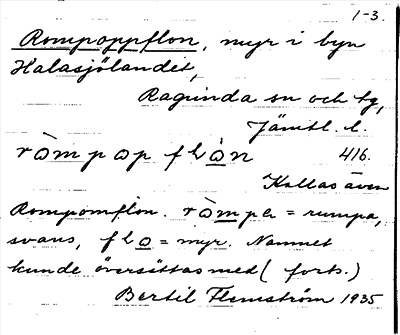 1-3.
Rompoppflon, myr i byn
Halasjölandet,
Ragunda sn och tg,
Jämtl. l.
ròmpop flo̱n 416.
Kallas även
Rompomflon. ròmpa = rumpa,
svans, flo̱ = myr. Namnet
kunde översättas med (forts.)
Bertil Flemström 1935